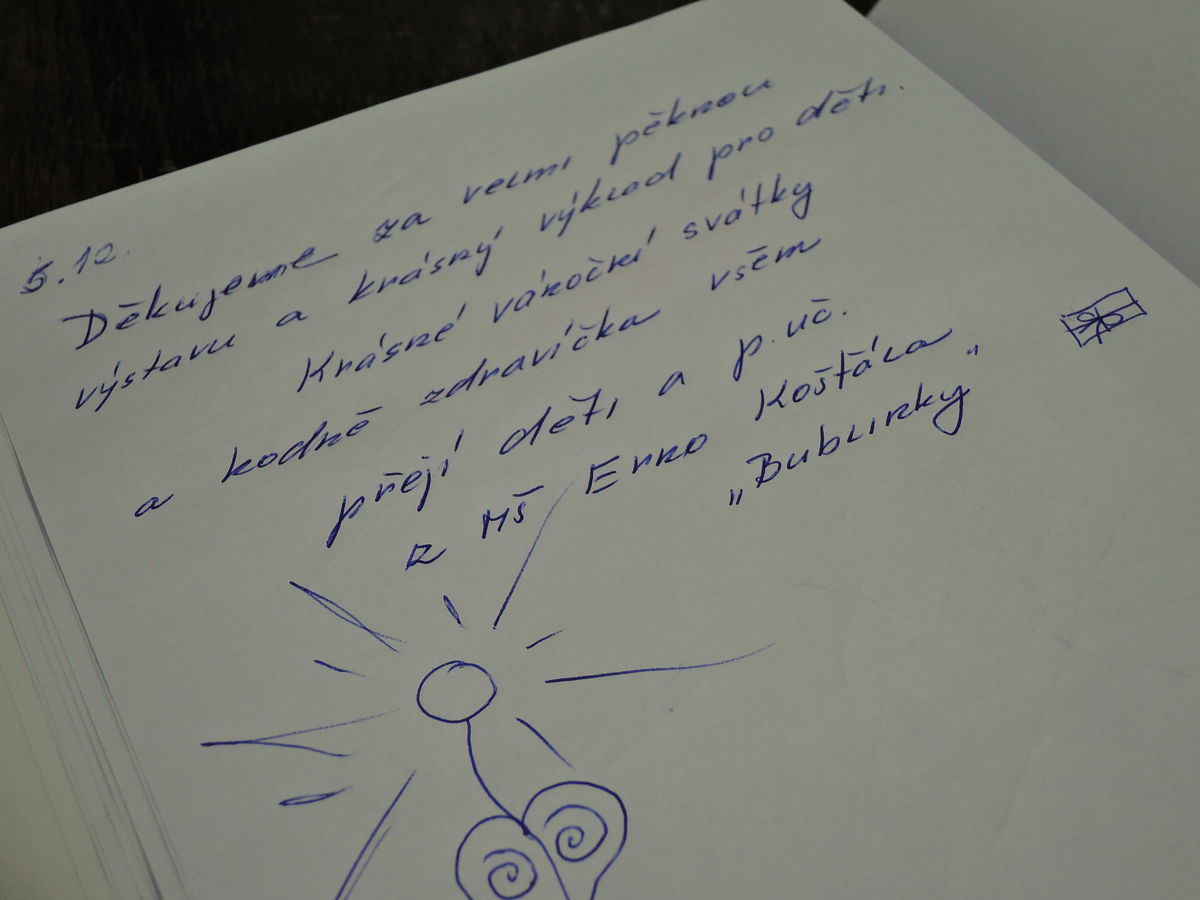 5.12.
Děkujeme za velmi pěknou
výstavu a krásný výklad pro děti.
Krásné vánoční svátky
a hodně zdravíčka všem
přejí děti a p. uč.
z MŠ Erno Košťála
„Bublinky"